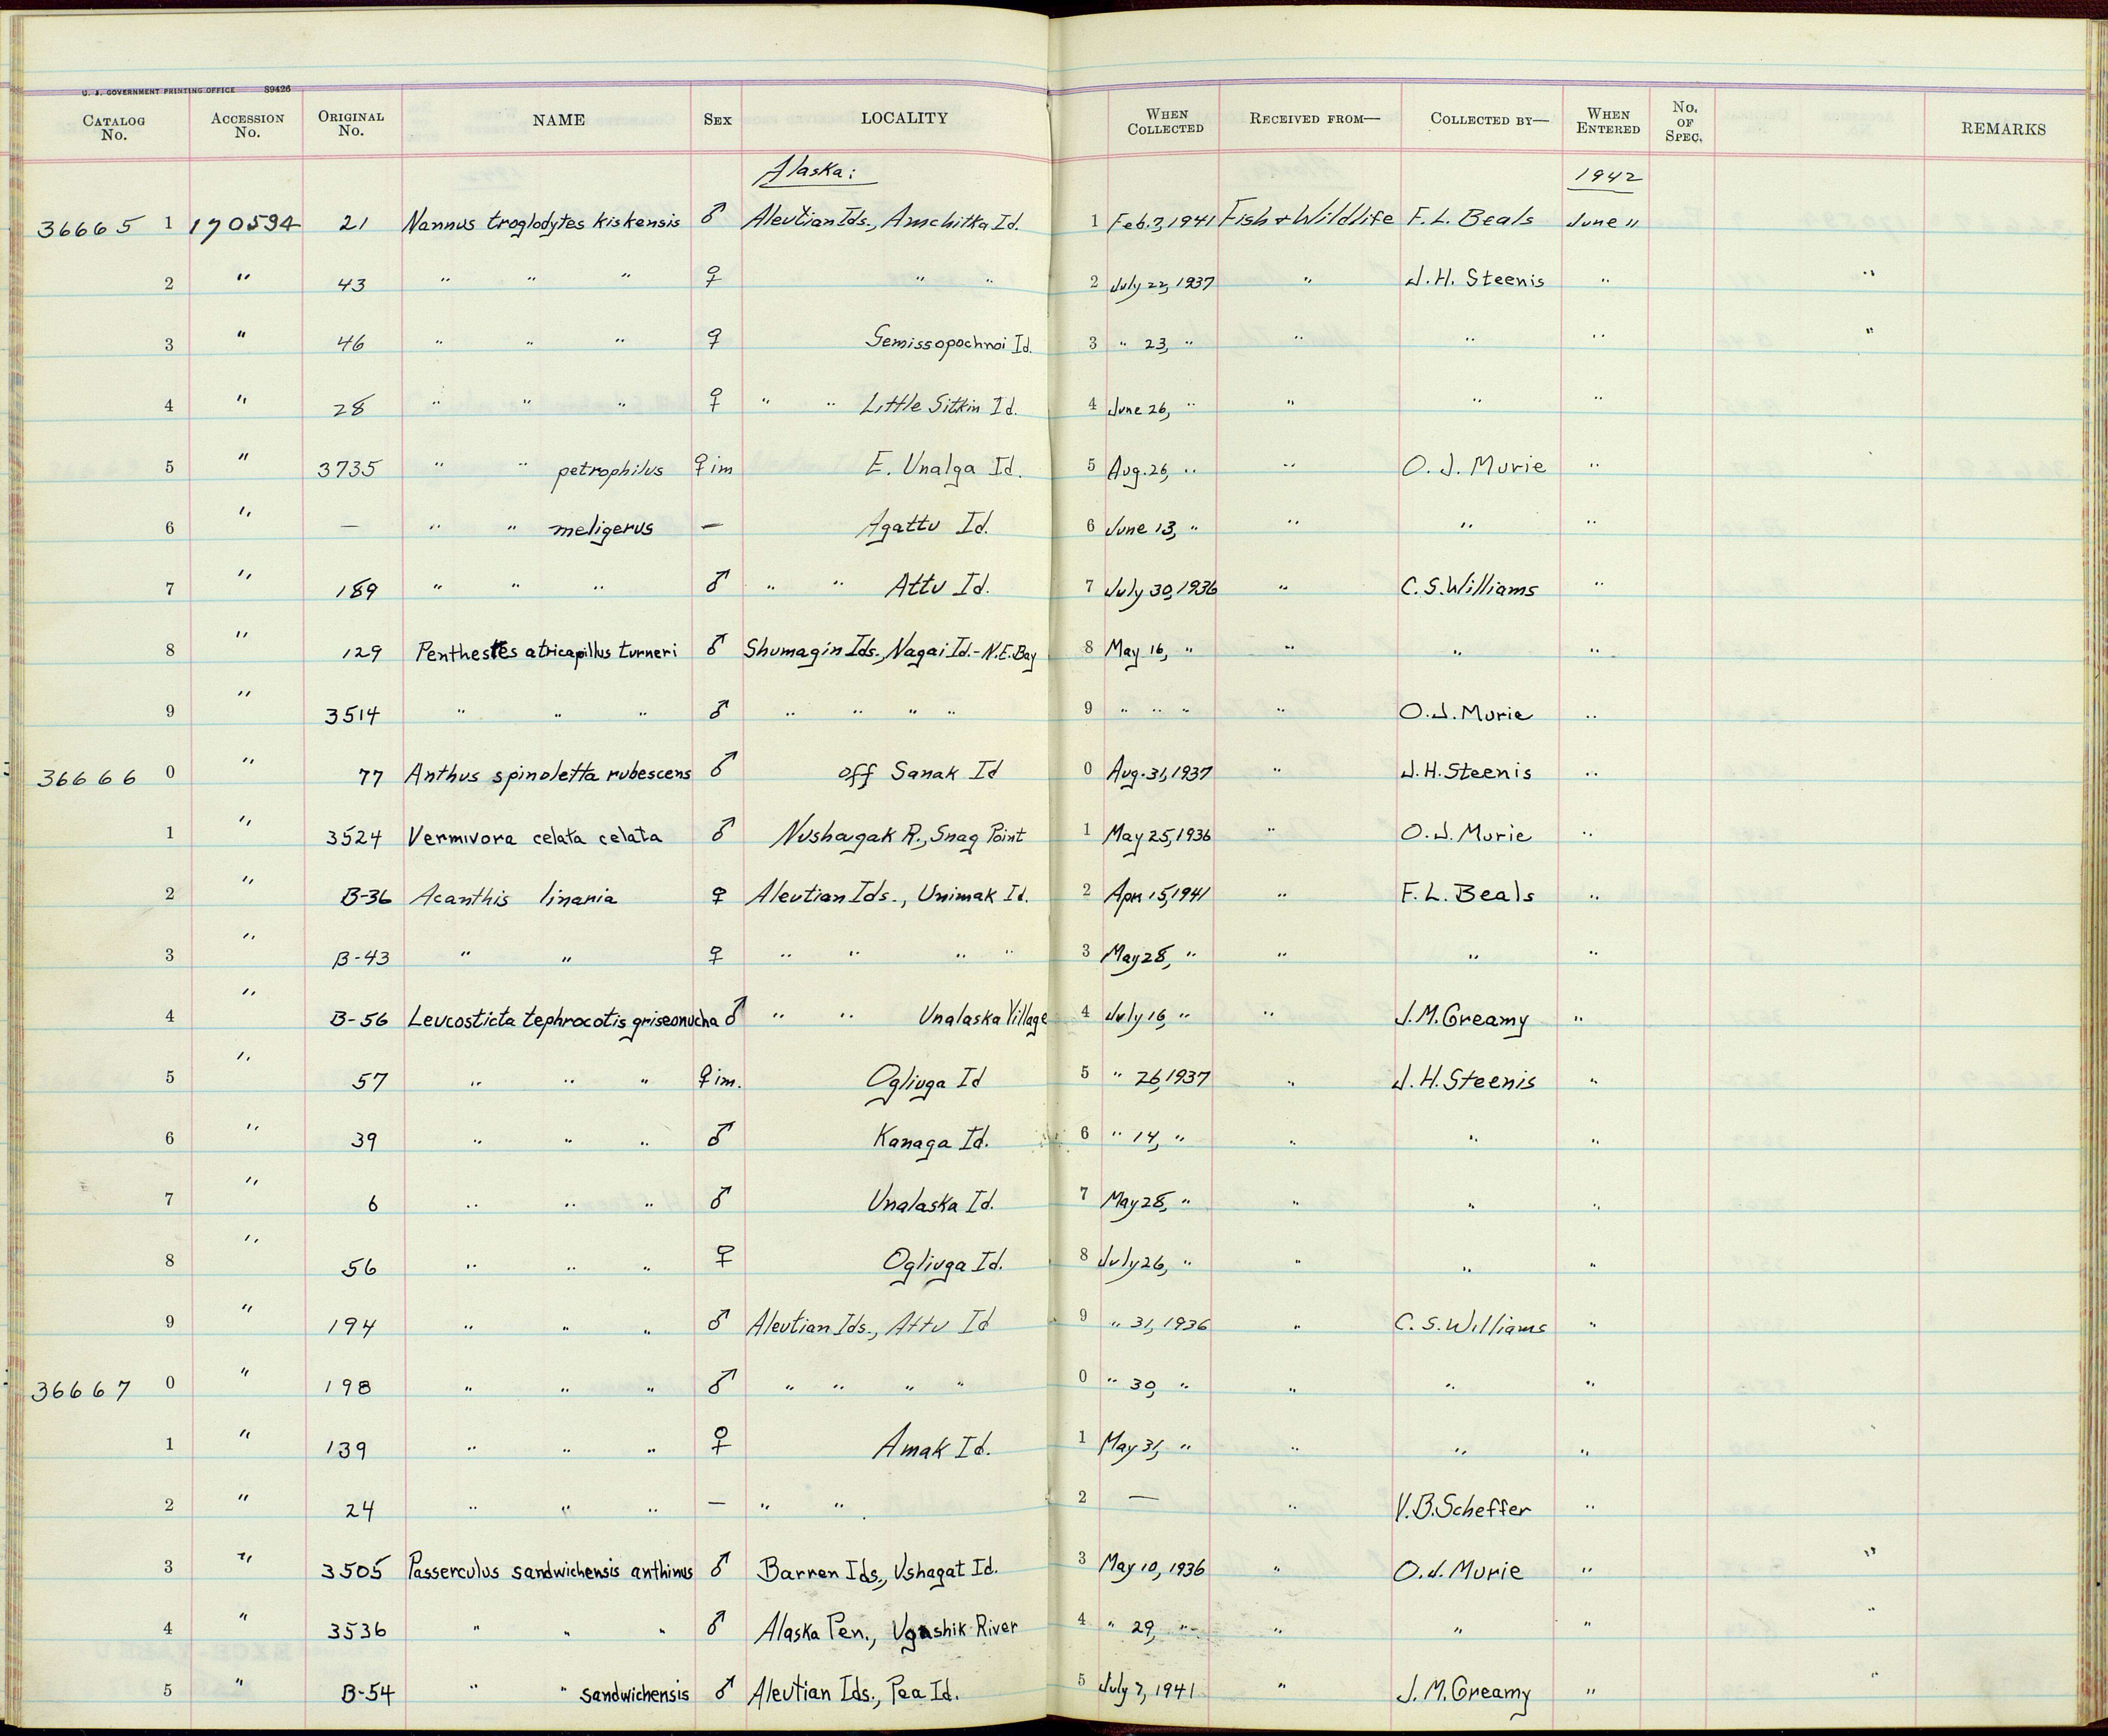 U. S. GOVERNMENT PRINTING OFFICE 89426
CATALOG No. ACCESSION No. ORIGINAL No. NAME SEX LOCALITY WHEN COLLECTED RECEIVED FROM— COLLECTED BY— WHEN ENTERED No. OF SPEC. REMARKS
Alaska: 1942
36665 1 170594 21 Nannus troglodytes kiskensis ♂ Aleutian Ids., Amchitka Id. 1 Feb. 7, 1941 Fish & Wildlife F. L. Beals June 11
2 " 43 " " " ♀ " " 2 July 22, 1937 " J. H. Steenis " "
3 " 46 " " " ♀ Semissopochnoi Id. 3 " 23, " " " " "
4 " 28 " " " ♀ " " Little Sitkin Id. 4 June 26, " " " "
5 " 3735 " " petrophilus ♀ im E. Unalga Id. 5 Aug. 26, " " O. J. Murie "
6 " — " " meligerus — Agattu Id. 6 June 13, " " " "
7 " 189 " " " ♂ " " Attu Id. 7 July 30, 1936 " C. S. Williams "
8 " 129 Penthestes atricapillus turneri ♂ Shumagin Ids., Nagai Id. - N.E. Bay 8 May 16, " " " "
9 " 3514 " " " ♂ " " " " 9 " " " " O. J. Murie "
36666 0 " 77 Anthus spinoletta rubescens ♂ off Sanak Id 0 Aug. 31, 1937 " J. H. Steenis "
1 " 3524 Vermivora celata celata ♂ Nushagak R., Snag Point 1 May 25, 1936 " O. J. Murie "
2 " B-36 Acanthis linaria ♀ Aleutian Ids., Unimak Id. 2 Apr. 15, 1941 " F. L. Beals "
3 " B-43 " " ♀ " " " " 3 May 28, " " " "
4 " B-56 Leucosticta tephrocotis griseonucha ♂ " " Unalaska Village 4 July 16, " " J. M. Greamy "
5 " 57 " " " ♀ im. Ogliuga Id 5 " 26, 1937 " J. H. Steenis "
6 " 39 " " " ♂ Kanaga Id. 6 " 14, " " " "
7 " 6 " " " ♂ Unalaska Id. 7 May 28, " " " "
8 " 56 " " " ♀ Ogliuga Id. 8 July 26, " " " "
9 " 194 " " " ♂ Aleutian Ids., Attu Id 9 " 31, 1936 " C. S. Williams "
36667 0 " 198 " " " ♂ " " " " 0 " 30, " " " "
1 " 139 " " " ♀ Amak Id. 1 May 31, " " " "
2 " 24 " " " — " " 2 — " V. B. Scheffer "
3 " 3505 Passerculus sandwichensis anthinus ♂ Barren Ids., Ushagat Id. 3 May 10, 1936 " O. J. Murie " "
4 " 3536 " " " ♂ Alaska Pen., Ugashik River 4 " 29, " " " " "
5 " B-54 " " sandwichensis ♂ Aleutian Ids., Pea Id. 5 July 7, 1941 " J. M. Greamy " "